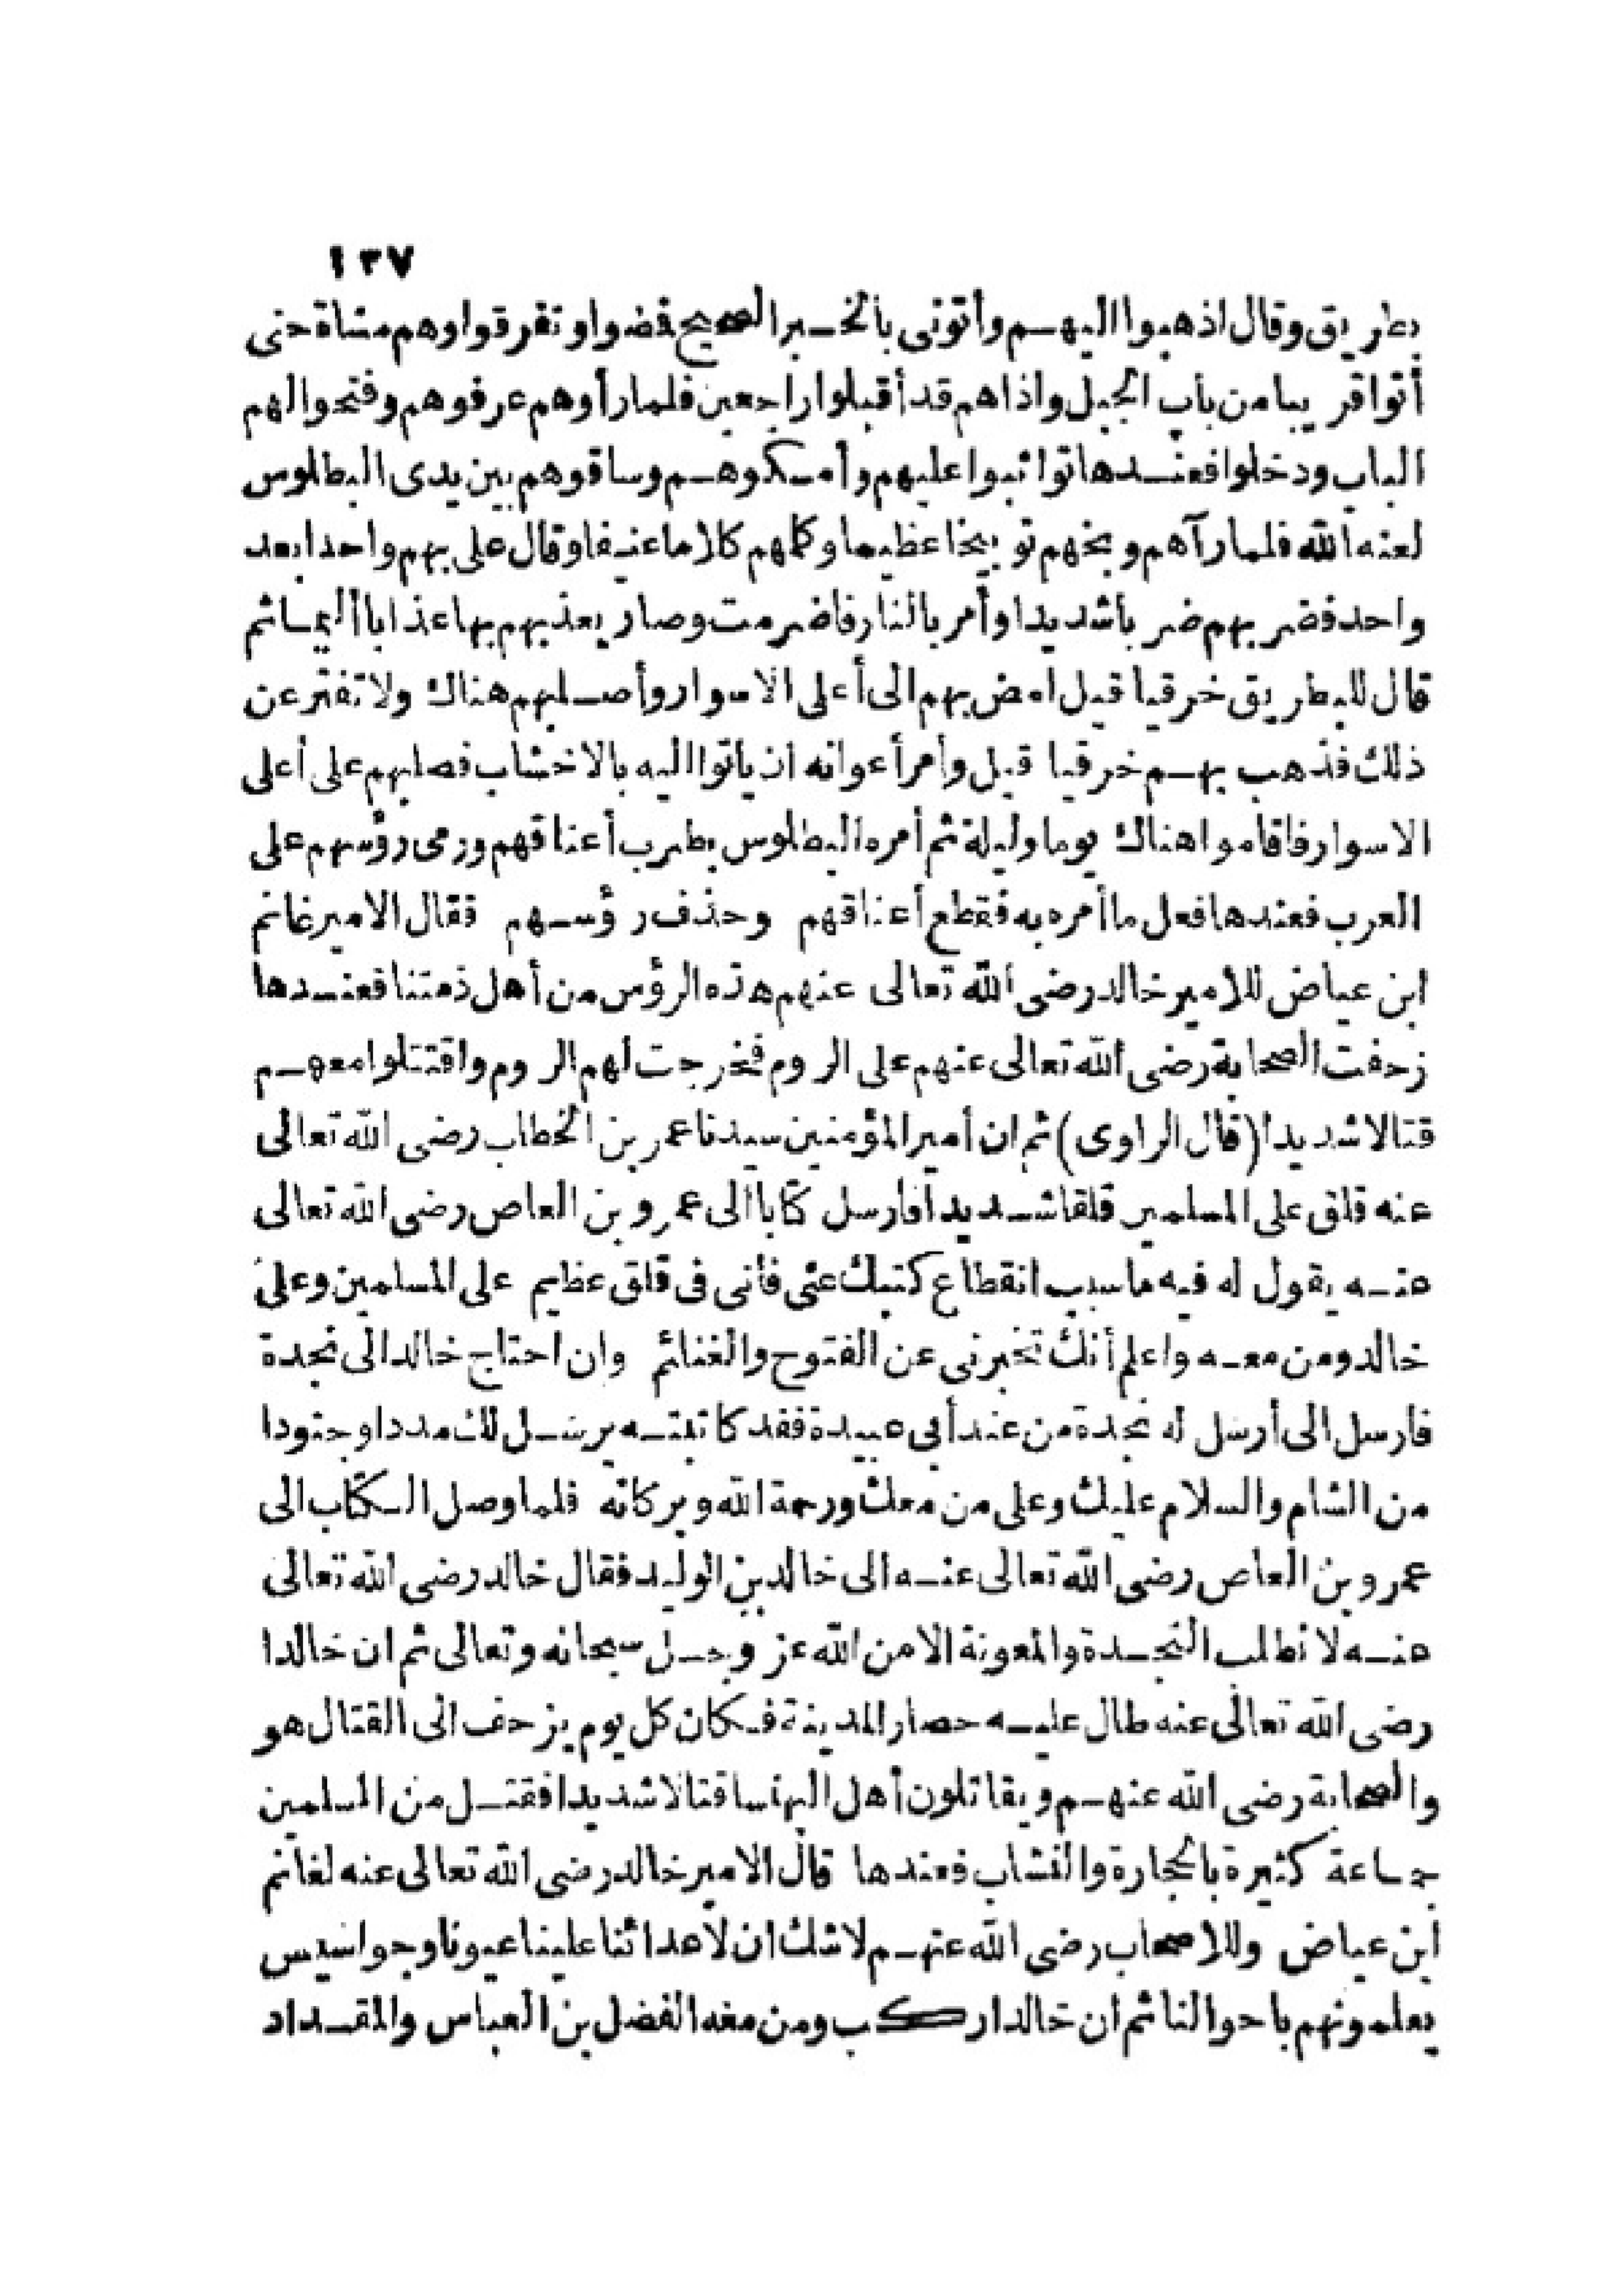 ١٣٧
بطريق وقال اذهبوا اليهم وأتونى بالخبر الصحيح فمضوا وتفرقوا وهم مشاة حتى
أتوا قريبا من باب الجبل واذاهم قد أقبلوا راجعين فلما رأوهم عرفوهم وفتحوا لهم
الباب ودخلوا فعندها تواثبوا عليهم وأمسكوهم وساقوهم بين يدى البطلوس
لعنه الله فلما رآهم وبخهم توبيخا عظيما وكلهم كلاما عنيفا وقال على بهم واحدا بعد
واحد فضربهم ضربا شديدا وأمر بالنار فاضرمت وصار يعذبهم بها عذابا أليما ثم
قال للبطريق خرقيا قيل امض بهم الى أعلى الاسوار وأصلبهم هناك ولا تفتر عن
ذلك فذهب بهم خرقيا قيل وأمر أعوانه ان يأتوا اليه بالاخشاب فصلبهم على أعلى
الاسوار فاقاموا هناك يوما وليلة ثم أمره البطلوس بضرب أعناقهم ورمى رؤسهم على
العرب فعندها فعل ما أمره به فقطع أعناقهم وحذف رؤسهم فقال الامير غانم
ابن عياض للامير خالد رضى الله تعالى عنهم هذه الرؤس من أهل ذمتنا فعندها
زحفت الصحابة رضى الله تعالى عنهم على الروم فخرجت لهم الروم واقتتلوا معهم
قتالا شديدا (قال الراوى) ثم ان أمير المؤمنين سيدنا عمر بن الخطاب رضى الله تعالى
عنه قلق على المسلمين قلقا شديدا فارسل كتابا الى عمرو بن العاص رضى الله تعالى
عنه يقول له فيه ما سبب انقطاع كتبك عنى فأنى فى قلق عظيم على المسلمين وعلى
خالد ومن معه واعلم أنك تخبرنى عن الفتوح والغنائم وان احتاج خالد الى نجدة
فارسل الى أرسل له نجدة من عند أبى عبيدة فقد كاتبته يرسل لك مددا وجنودا
من الشام والسلام عليك وعلى من معك ورحمة الله وبركاته فلما وصل الكتاب الى
عمرو بن العاص رضى الله تعالى عنه الى خالد بن الوليد فقال خالد رضى الله تعالى
عنه لا نطلب النجدة والمعونة الا من الله عز وجل سبحانه وتعالى ثم ان خالدا
رضى الله تعالى عنه طال عليه حصار المدينة فكان كل يوم يزحف الى القتال هو
والصحابة رضى الله عنهم ويقاتلون أهل البهنسا قتالا شديدا فقتل من المسلمين
جماعة كثيرة بالحجارة والنشاب فعندها قال الامير خالد رضى الله تعالى عنه لغانم
ابن عياض وللاصحاب رضى الله عنهم لاشك ان لاعدائنا علينا عيونا وجواسيس
يعلمونهم باحوالنا ثم ان خالدا ركب ومن معه الفضل بن العباس والمقداد